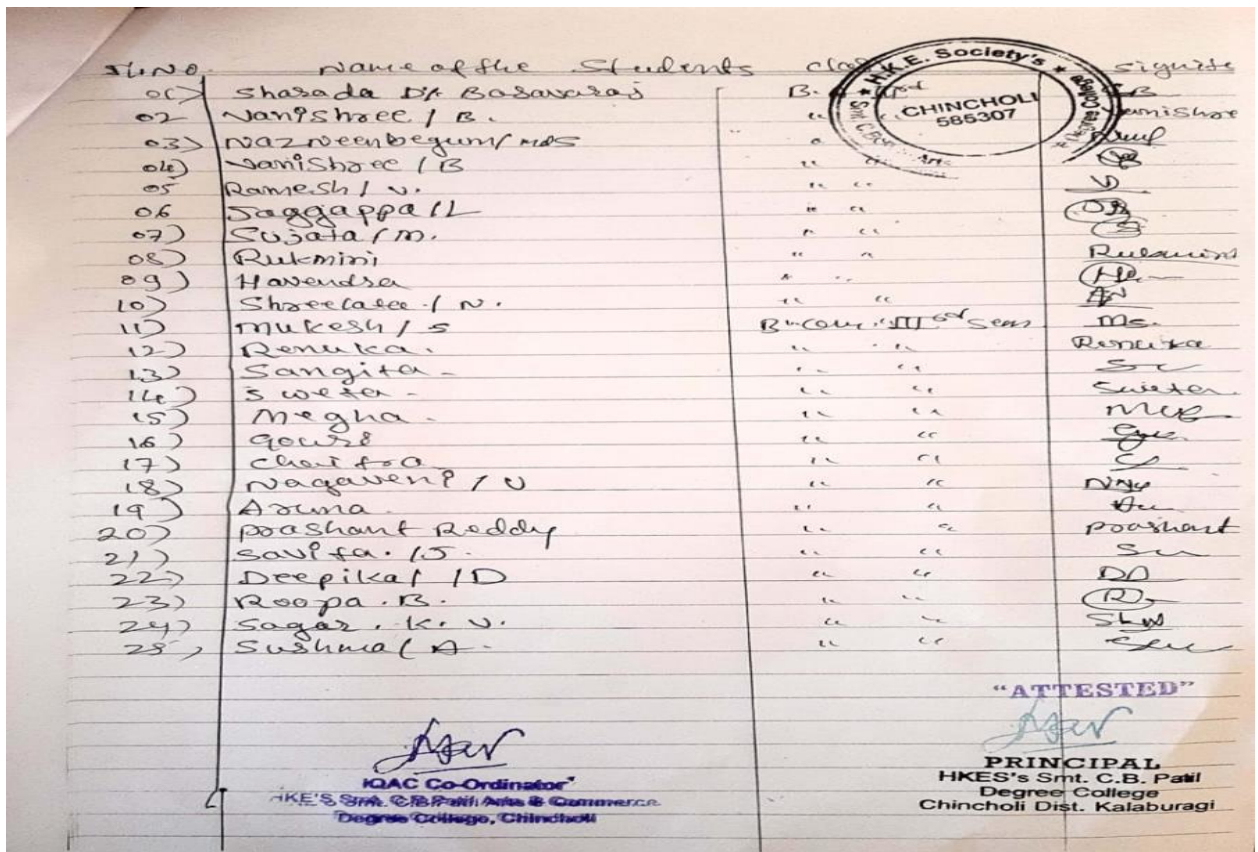 Sl.No. Name of the Students class Signite
H.K.E. Society's
CHINCHOLI
585307
01) Sharada D/o Basavaraj B.
02 Vanishree / B. " Vanishree
03) Nazneenbegum / mds "
04) Vanishree / B " "
05 Ramesh / V. " " V
06 Jaggappa / L " "
07) Sujata / M. " " S
08) Rukmini " " Rukmini
09) Havendra " "
10) Shreelatee / N. " "
11) Mukesh / S B.com IIIrd Sem Ms.
12) Renuka. " " Renuka
13) Sangita - " "
14) Sweta - " " Sweta
15) Megha - " "
16) Gouri " "
17) Chaitra " "
18) Nagaveni / V " "
19) Aruna. " "
20) Prashant Reddy " " Prashant
21) Savita. / J. " "
22) Deepika / / D " " DD
23) Roopa. B. " " R
24) Sagar. K. V. " "
25) Sushma / A. " "
"ATTESTED"
IQAC Co-Ordinator
HKE'S Smt. C.B. Patil Arts & Commerce
Degree College, Chincholi
PRINCIPAL
HKES's Smt. C.B. Patil
Degree College
Chincholi Dist. Kalaburagi